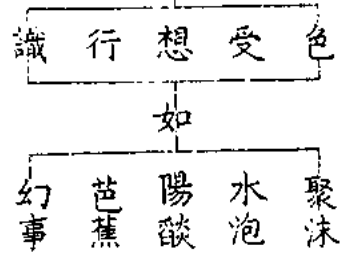 色 受 想 行 識
如
聚沫 水泡 陽燄 芭蕉 幻事